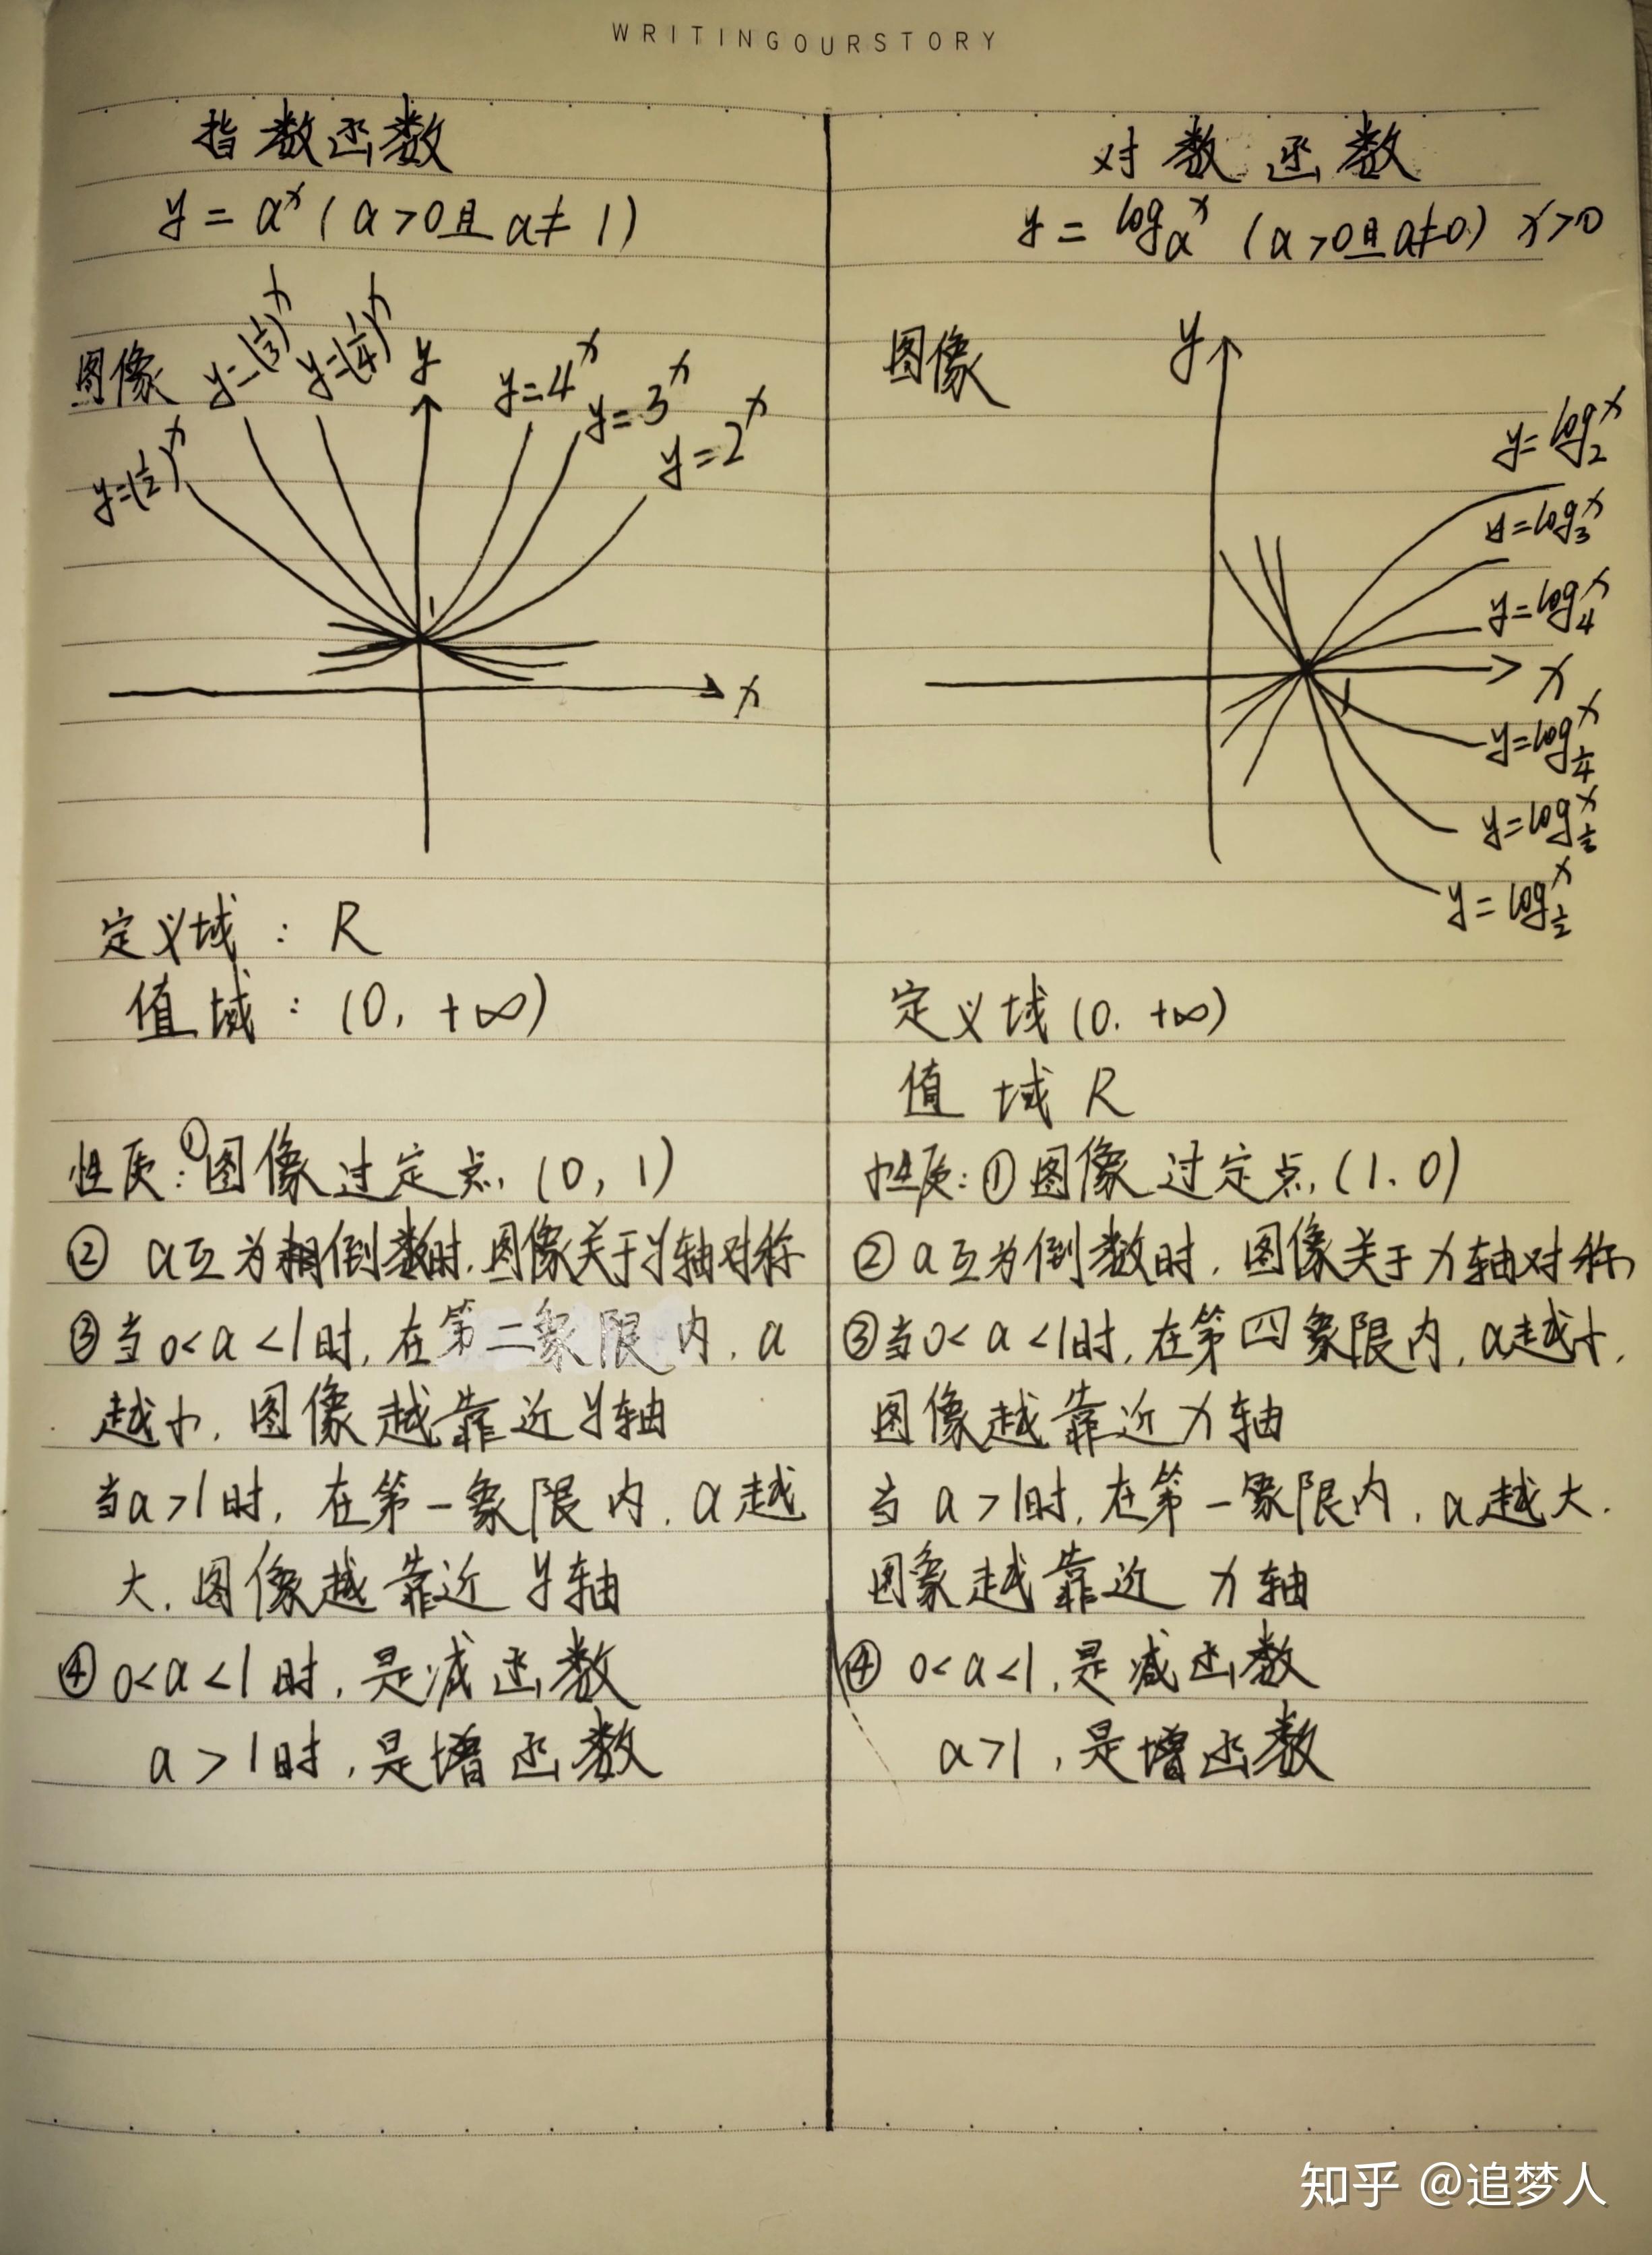 WRITINGOURSTORY
指数函数
y = a^x (a>0且a≠1)
图像
y=(1/2)^x
y=(1/3)^x
y=(1/4)^x
y
y=4^x
y=3^x
y=2^x
1
x
定义域：R
值域：(0, +∞)
性质：①图像过定点, (0, 1)
② a互为相倒数时, 图像关于y轴对称
③当0<a<1时, 在第二象限内, a
越小, 图像越靠近y轴
当a>1时, 在第一象限内, a越
大, 图像越靠近y轴
④ 0<a<1时, 是减函数
a>1时, 是增函数
对数函数
y = log_a^x (a>0且a≠0) x>0
图像
y
y=log_2^x
y=log_3^x
y=log_4^x
x
1
y=log_{1/4}^x
y=log_{1/3}^x
y=log_{1/2}^x
定义域(0, +∞)
值域 R
性质：①图像过定点, (1, 0)
② a互为倒数时, 图像关于x轴对称
③当0<a<1时, 在第四象限内, a越小,
图像越靠近x轴
当a>1时, 在第一象限内, a越大,
图象越靠近 x轴
④ 0<a<1, 是减函数
a>1, 是增函数
知乎 @追梦人